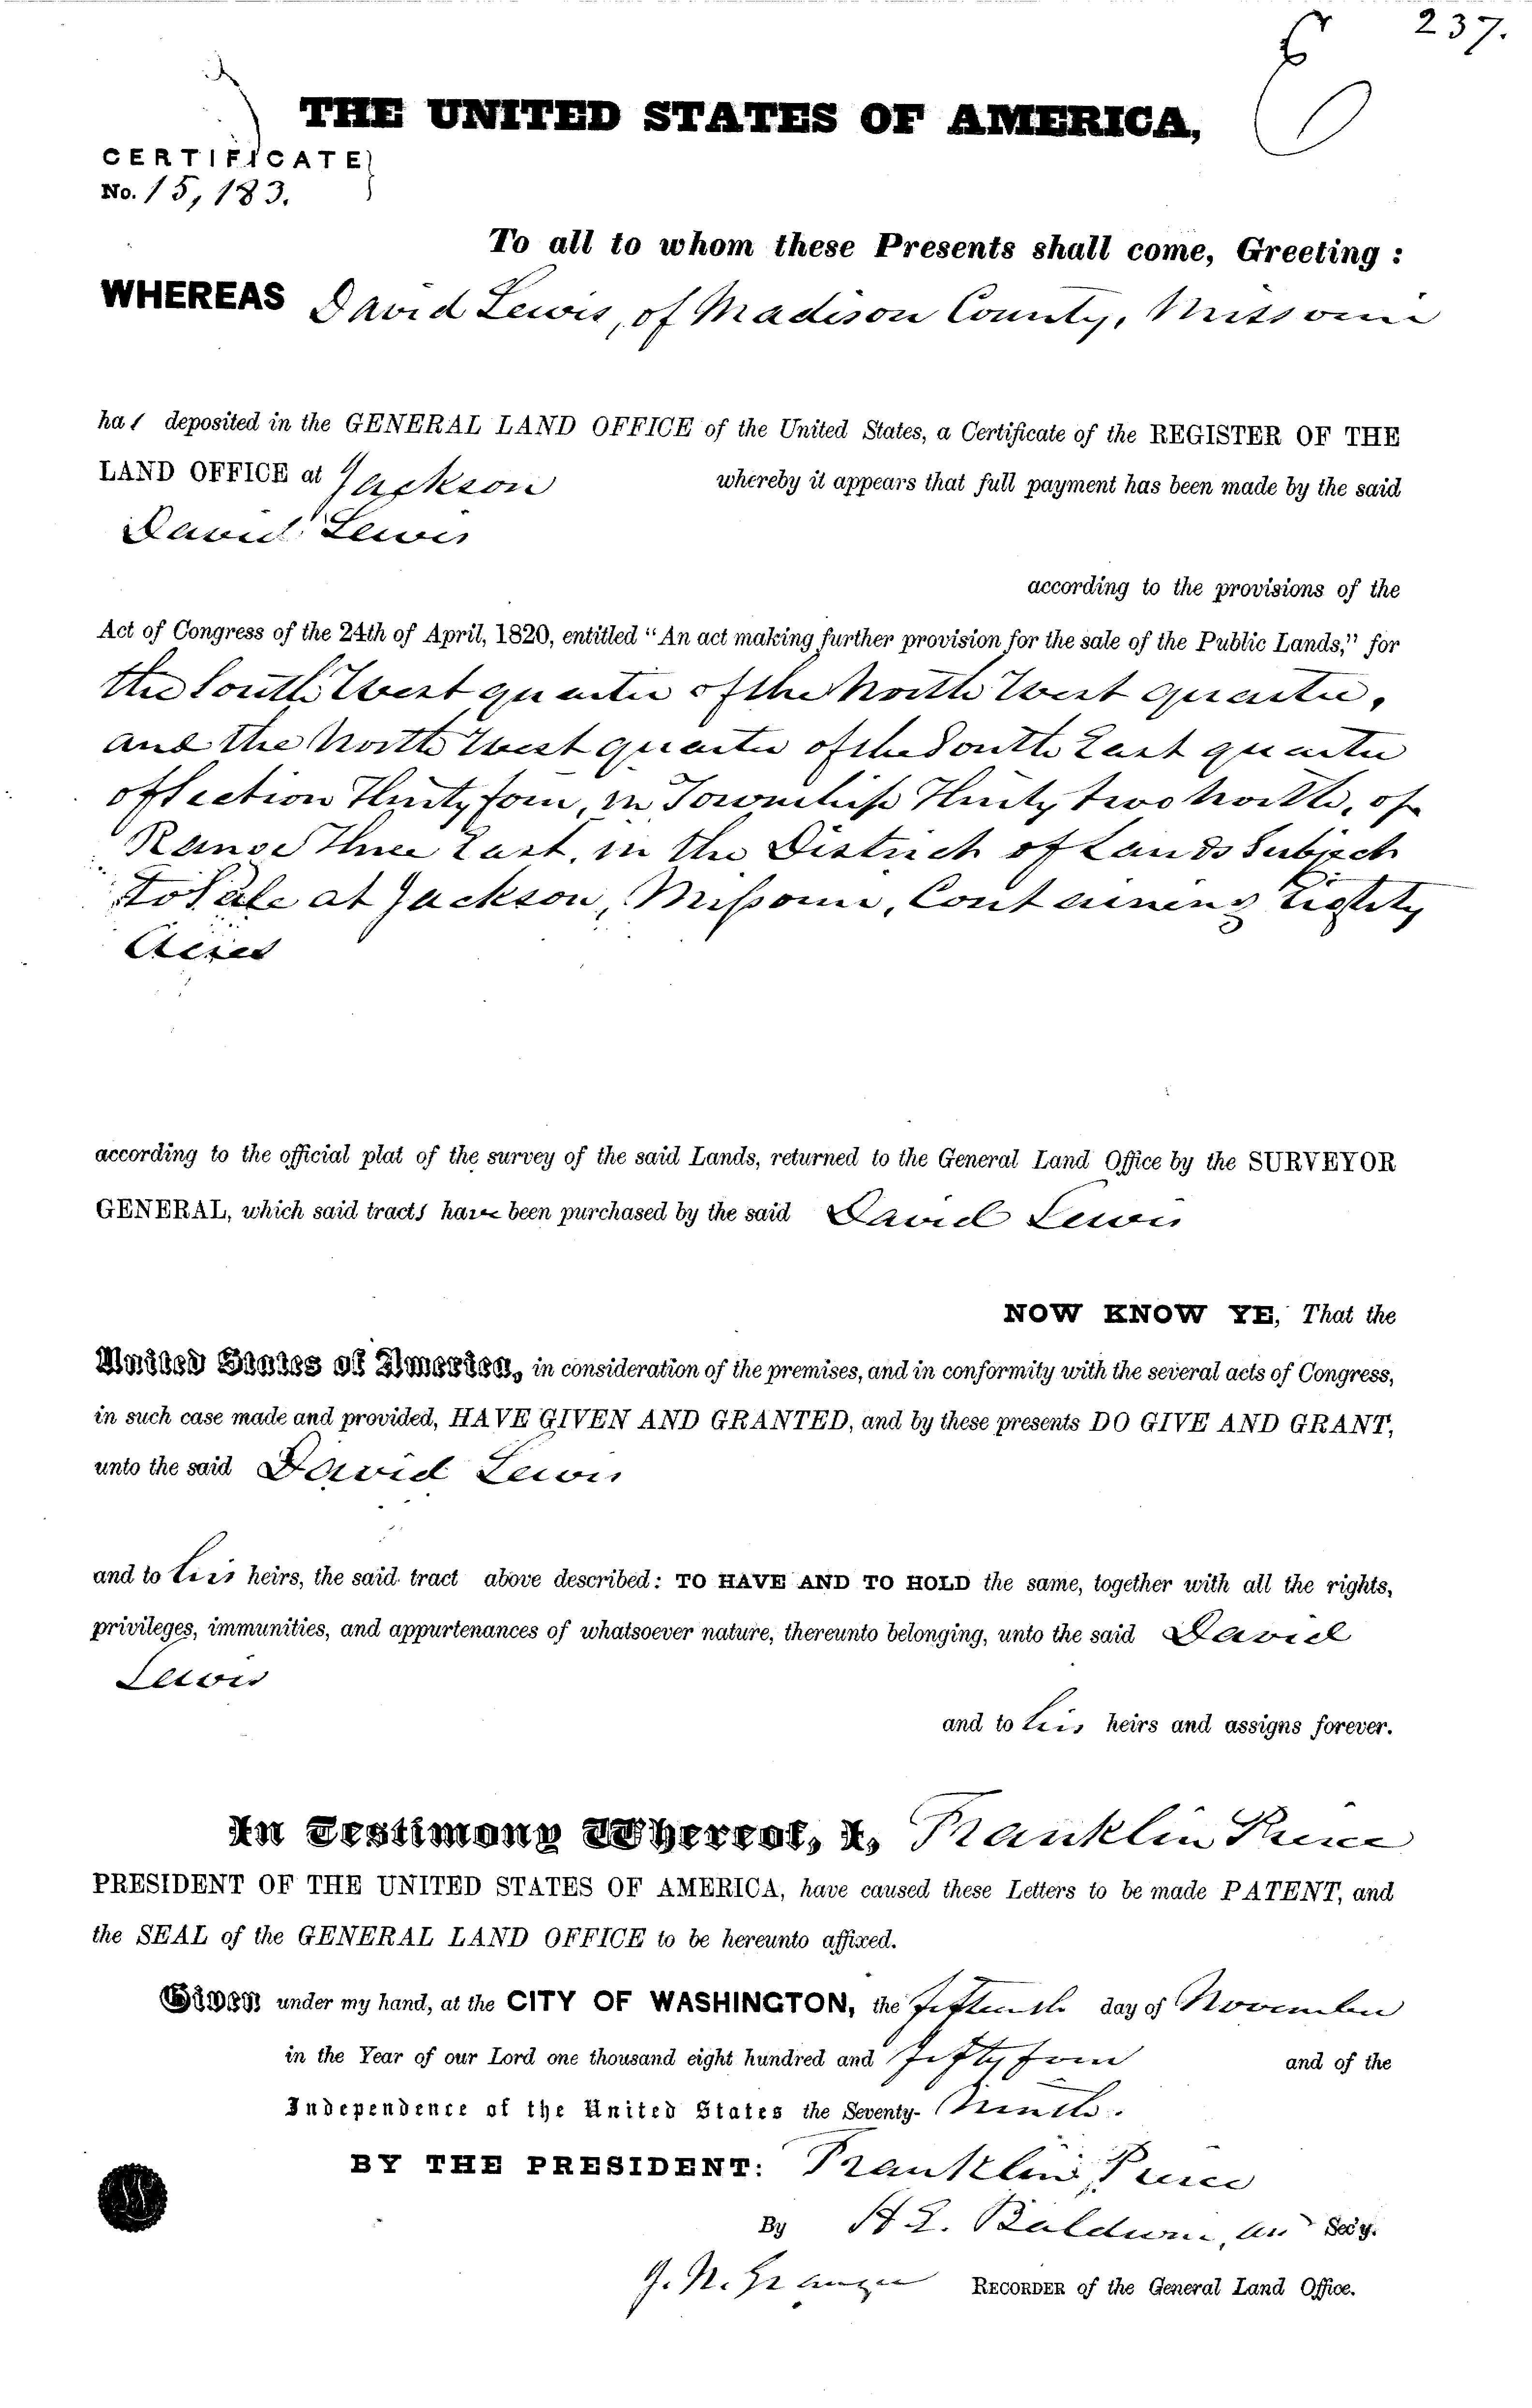 237.
THE UNITED STATES OF AMERICA,
CERTIFICATE
No. 15,183.
To all to whom these Presents shall come, Greeting :
WHEREAS David Lewis, of Madison County, Missouri
has deposited in the GENERAL LAND OFFICE of the United States, a Certificate of the REGISTER OF THE
LAND OFFICE at Jackson whereby it appears that full payment has been made by the said
David Lewis
according to the provisions of the
Act of Congress of the 24th of April, 1820, entitled "An act making further provision for the sale of the Public Lands," for
the South West quarter of the North West quarter,
and the North West quarter of the South East quarter
of Section Thirty four, in Township Thirty two North, of
Range Three East, in the District of Lands Subject
to Sale at Jackson, Missouri, Containing Eighty
Acres
according to the official plat of the survey of the said Lands, returned to the General Land Office by the SURVEYOR
GENERAL, which said tracts have been purchased by the said David Lewis
NOW KNOW YE, That the
United States of America, in consideration of the premises, and in conformity with the several acts of Congress,
in such case made and provided, HAVE GIVEN AND GRANTED, and by these presents DO GIVE AND GRANT,
unto the said David Lewis
and to his heirs, the said tract above described: TO HAVE AND TO HOLD the same, together with all the rights,
privileges, immunities, and appurtenances of whatsoever nature, thereunto belonging, unto the said David
Lewis
and to his heirs and assigns forever.
In Testimony Whereof, I, Franklin Pierce
PRESIDENT OF THE UNITED STATES OF AMERICA, have caused these Letters to be made PATENT, and
the SEAL of the GENERAL LAND OFFICE to be hereunto affixed.
Given under my hand, at the CITY OF WASHINGTON, the fifteenth day of November
in the Year of our Lord one thousand eight hundred and fifty four and of the
Independence of the United States the Seventy-Ninth.
BY THE PRESIDENT: Franklin Pierce
By H. E. Baldwin, Secy.
J. N. Granger RECORDER of the General Land Office.